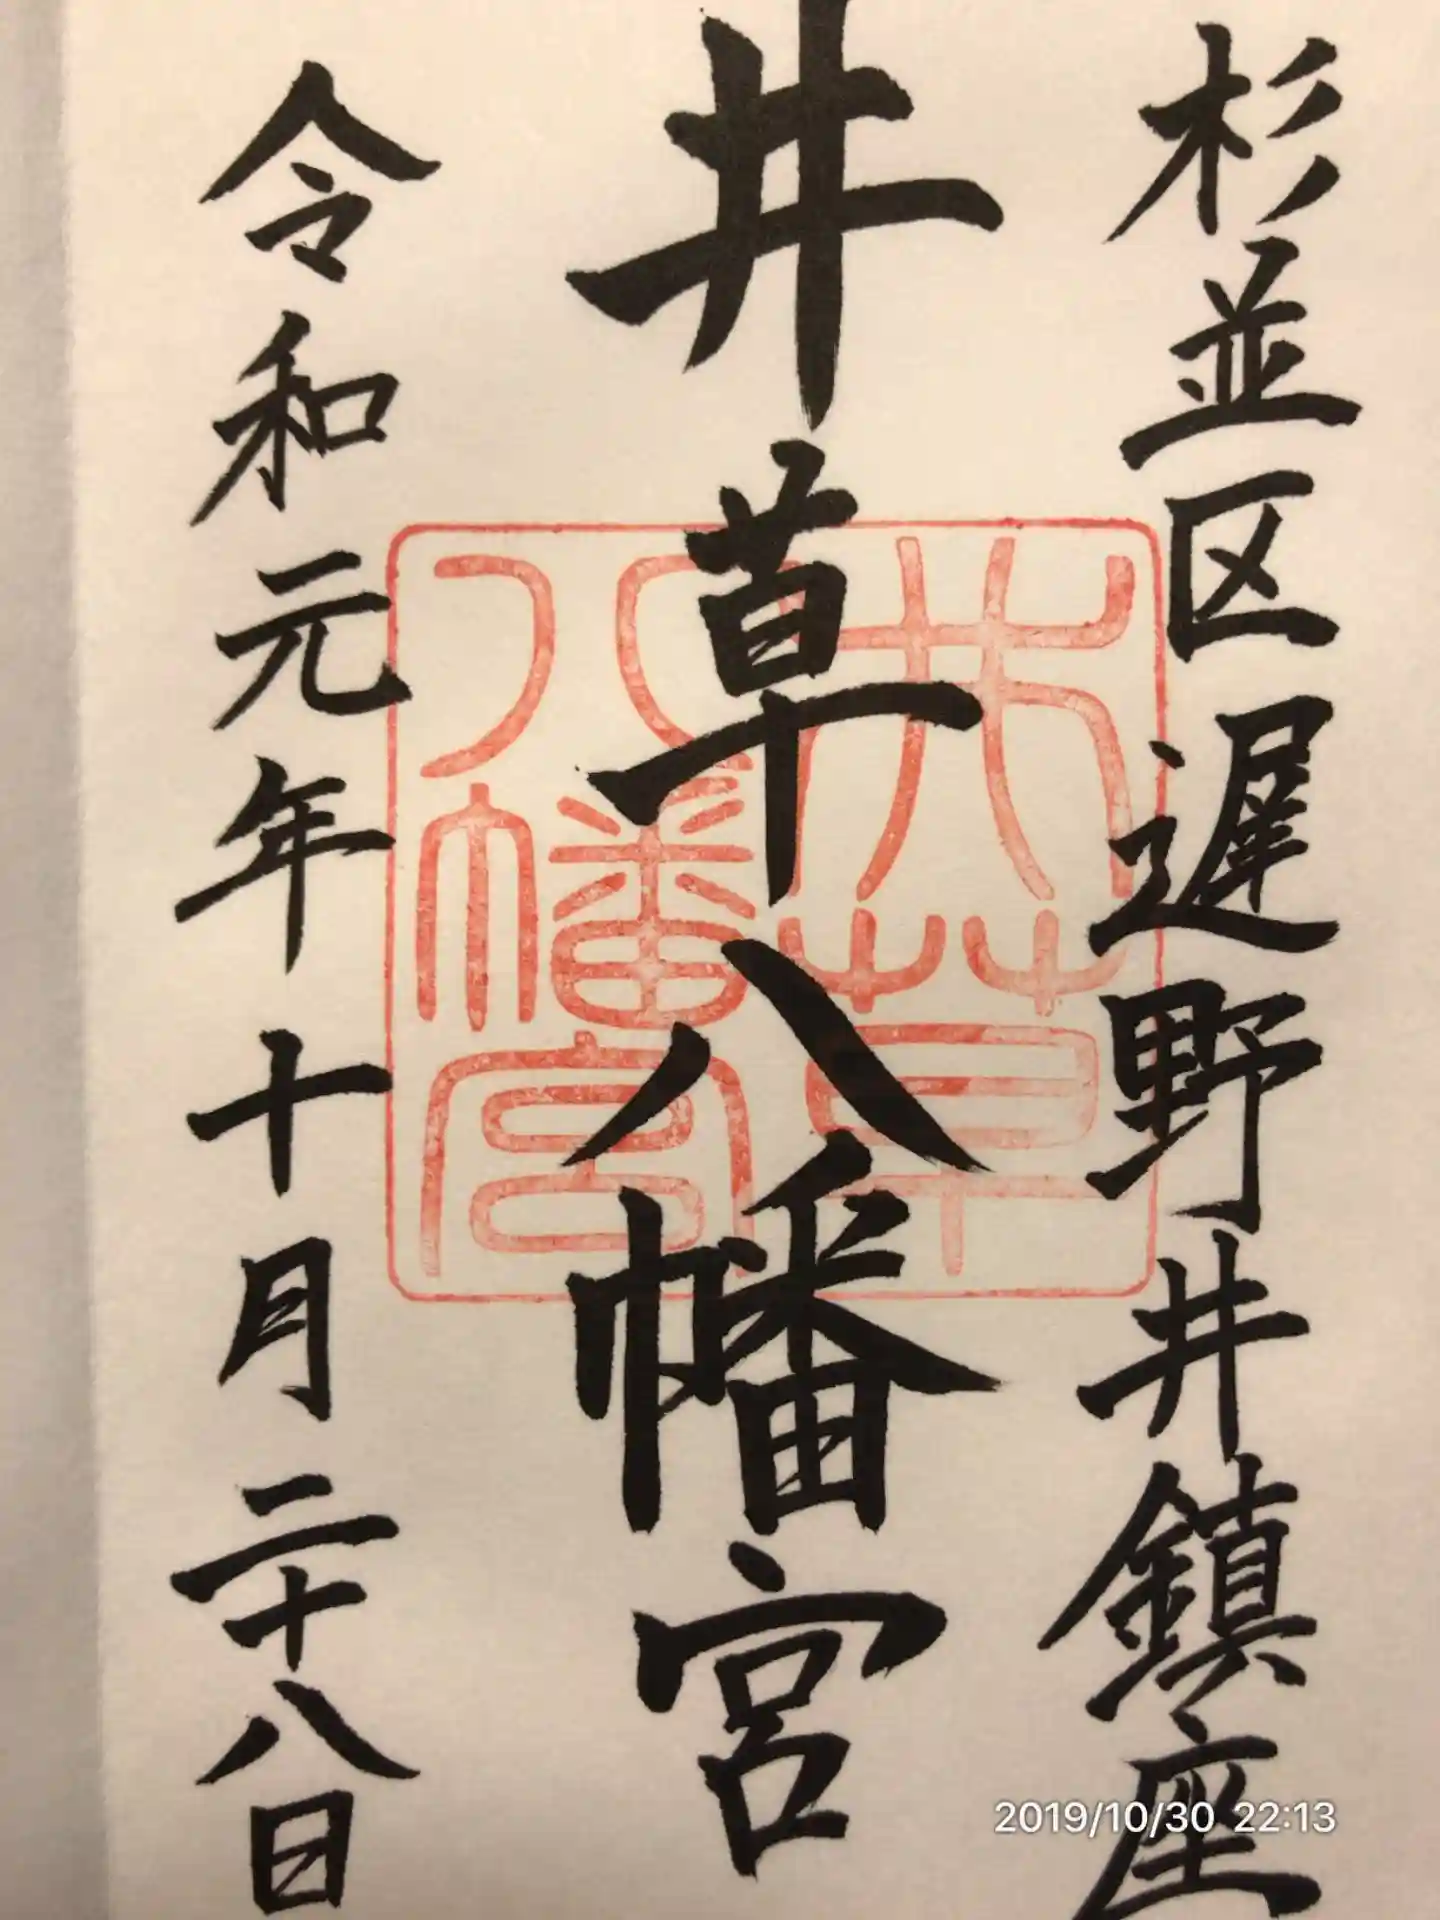 杉並区遅野井鎮座
井草八幡宮
井草八幡宮
令和元年十月二十八日
2019/10/30 22:13